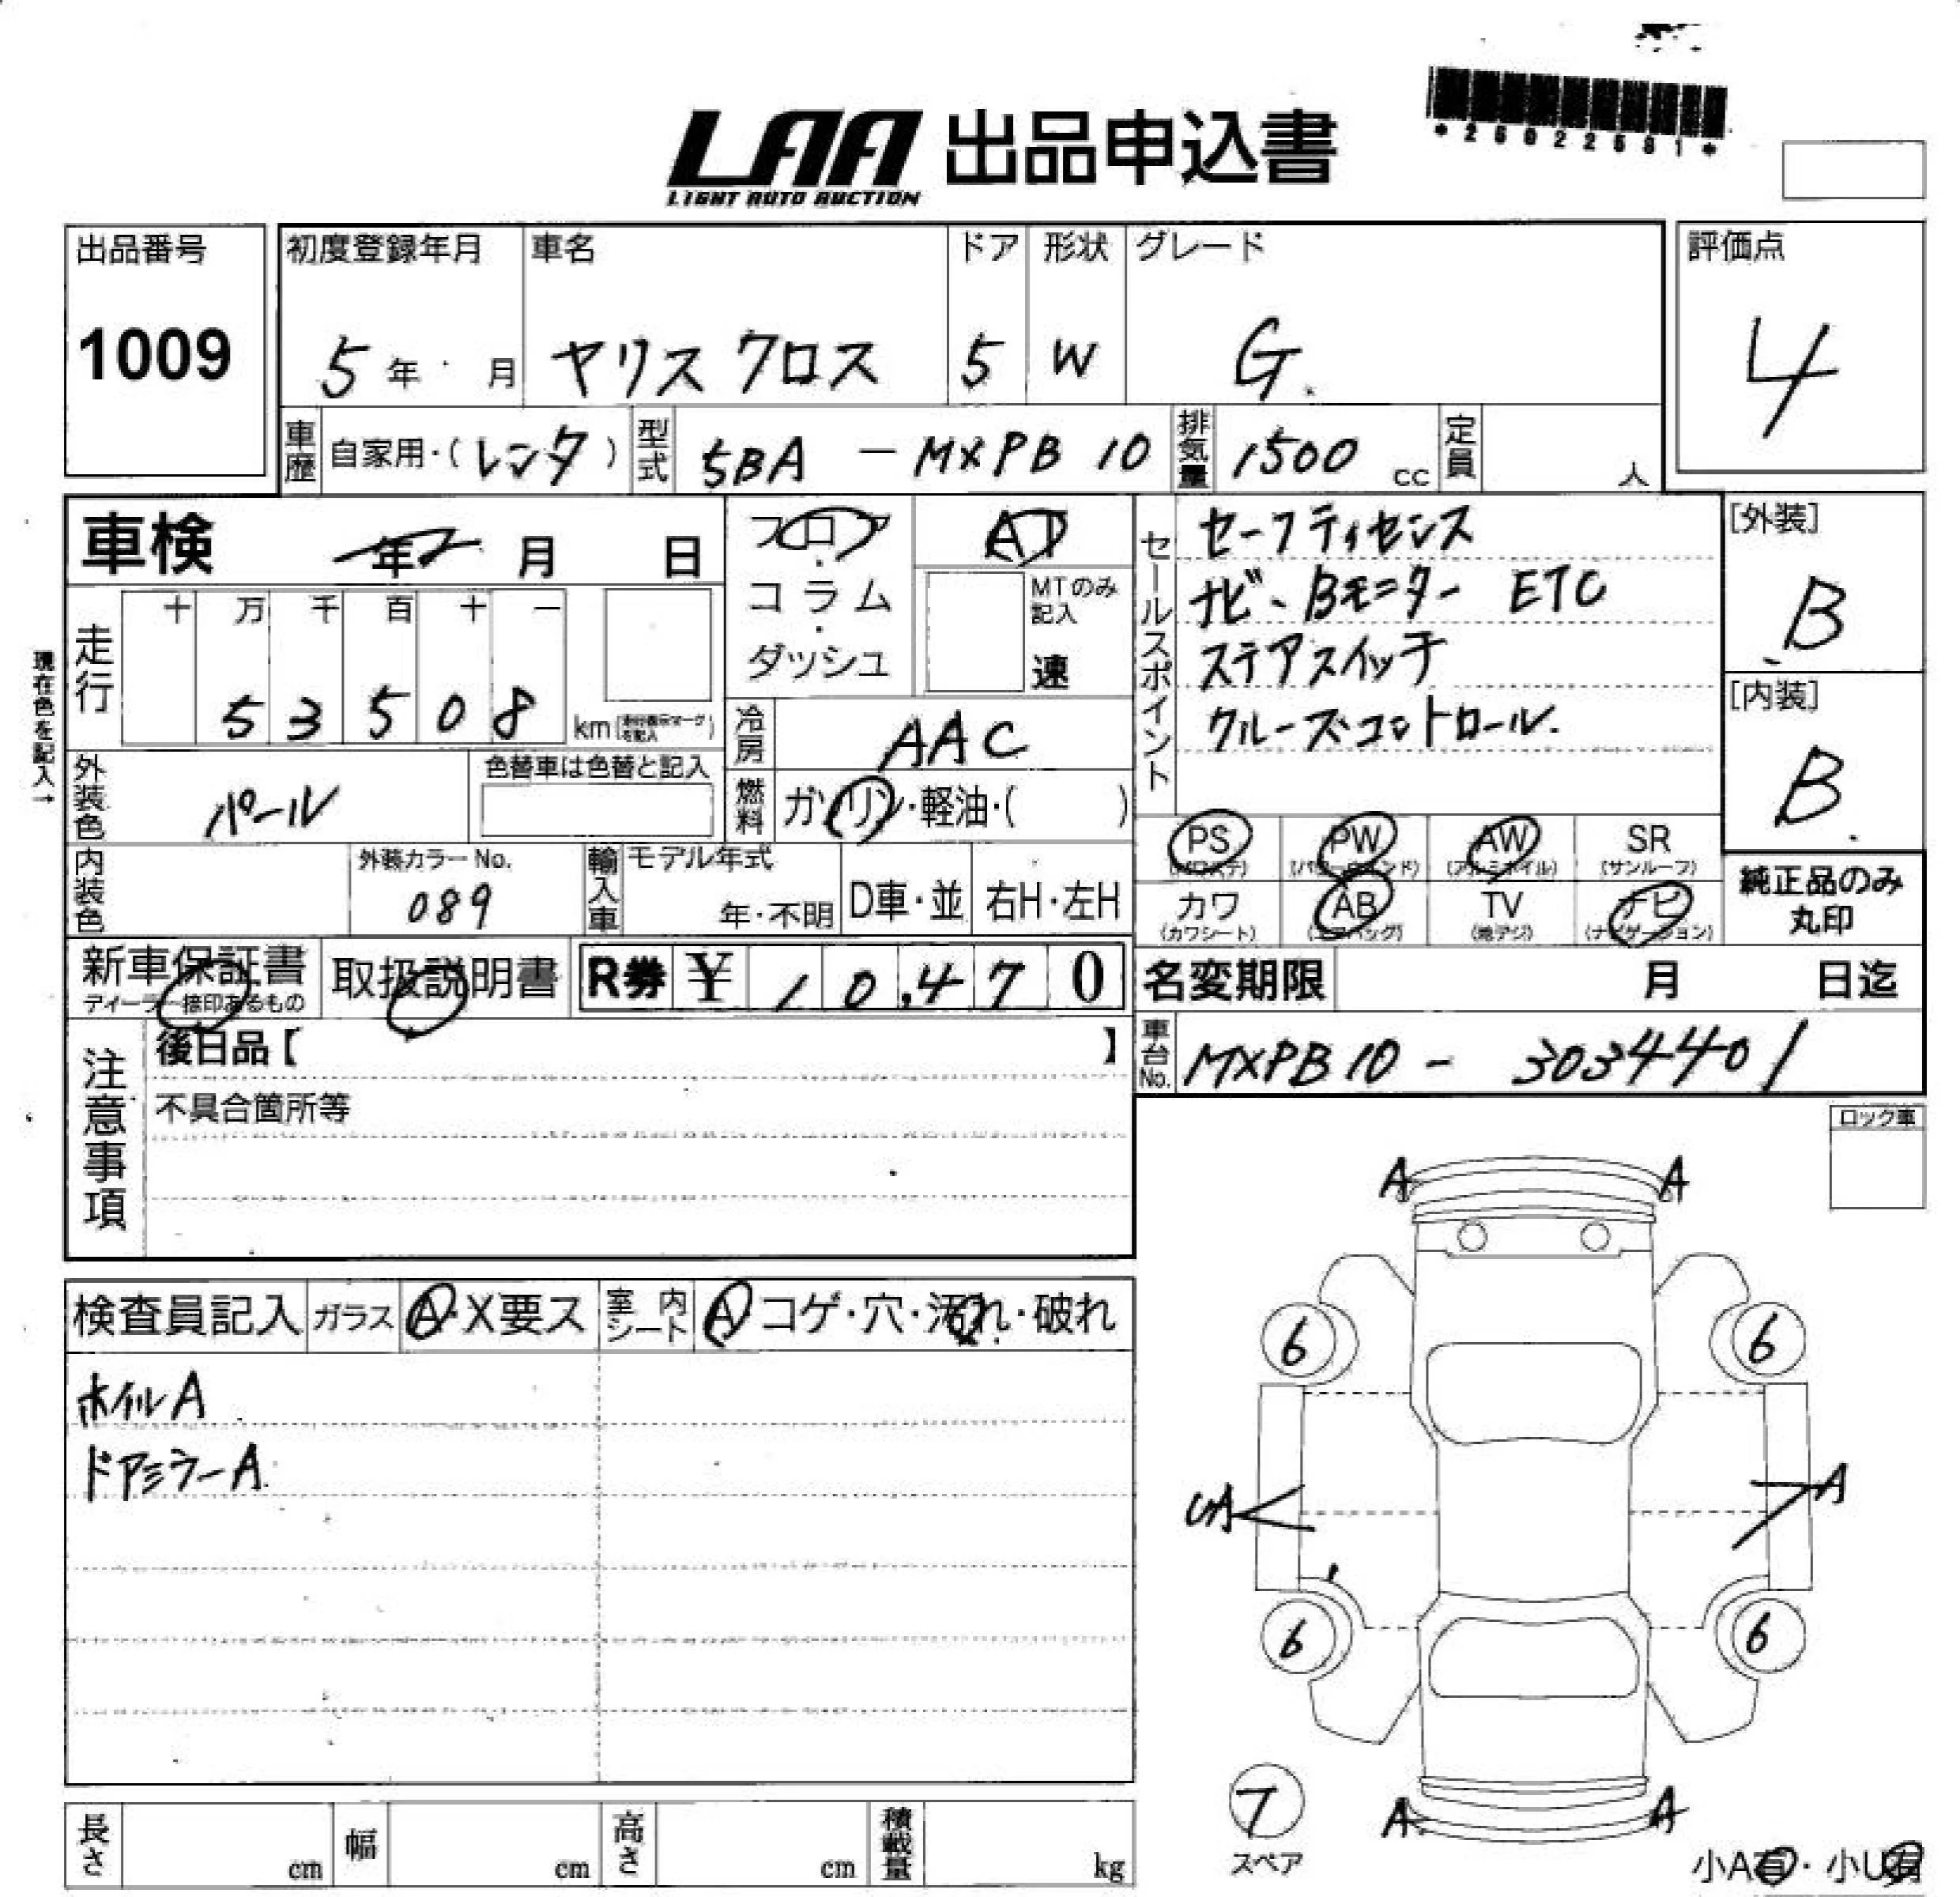 LAA 出品申込書
LIGHT AUTO AUCTION
*26022581*
出品番号
1009
初度登録年月
5年 月
車名
ヤリスクロス
ドア
5
形状
W
グレード
G
評価点
4
車歴
自家用・(レンタ)
型式
5BA - MXPB10
排気量
1500 cc
定員
人
車検 年 月 日
フロア・コラム・ダッシュ
AT
MTのみ記入
速
セールスポイント
セーフティセンス
ナビ、Bモニター ETC
ステアスイッチ
クルーズコントロール.
[外装]
B
[内装]
B
現在色を記入→
走行
十 万 千 百 十 一
53508 km
冷房
AAC
燃料
ガソリン・軽油・( )
外装色
パール
色替車は色替と記入
内装色
外装カラーNo.
089
輸入車
モデル年式
年・不明
D車・並
右H・左H
PS
(パワステ)
PW
(パワーウインド)
AW
(アルミホイル)
SR
(サンルーフ)
カワ
(カワシート)
AB
(エアバッグ)
TV
(地デジ)
ナビ
(ナビゲーション)
純正品のみ
丸印
新車保証書
ディーラー捺印あるもの
取扱説明書
R券 ¥ 10,470
名変期限 月 日迄
車台No.
MXPB10 - 3034401
注意事項
後日品【 】
不具合箇所等
ロック車
検査員記入
ガラス
A・X要ス
室内シート
A・コゲ・穴・汚れ・破れ
ホイルA
ドアミラーA
A A
6 6
UA A
6 6
A A
7
スペア
小A有・小U有
長さ cm
幅 cm
高さ cm
積載量 kg